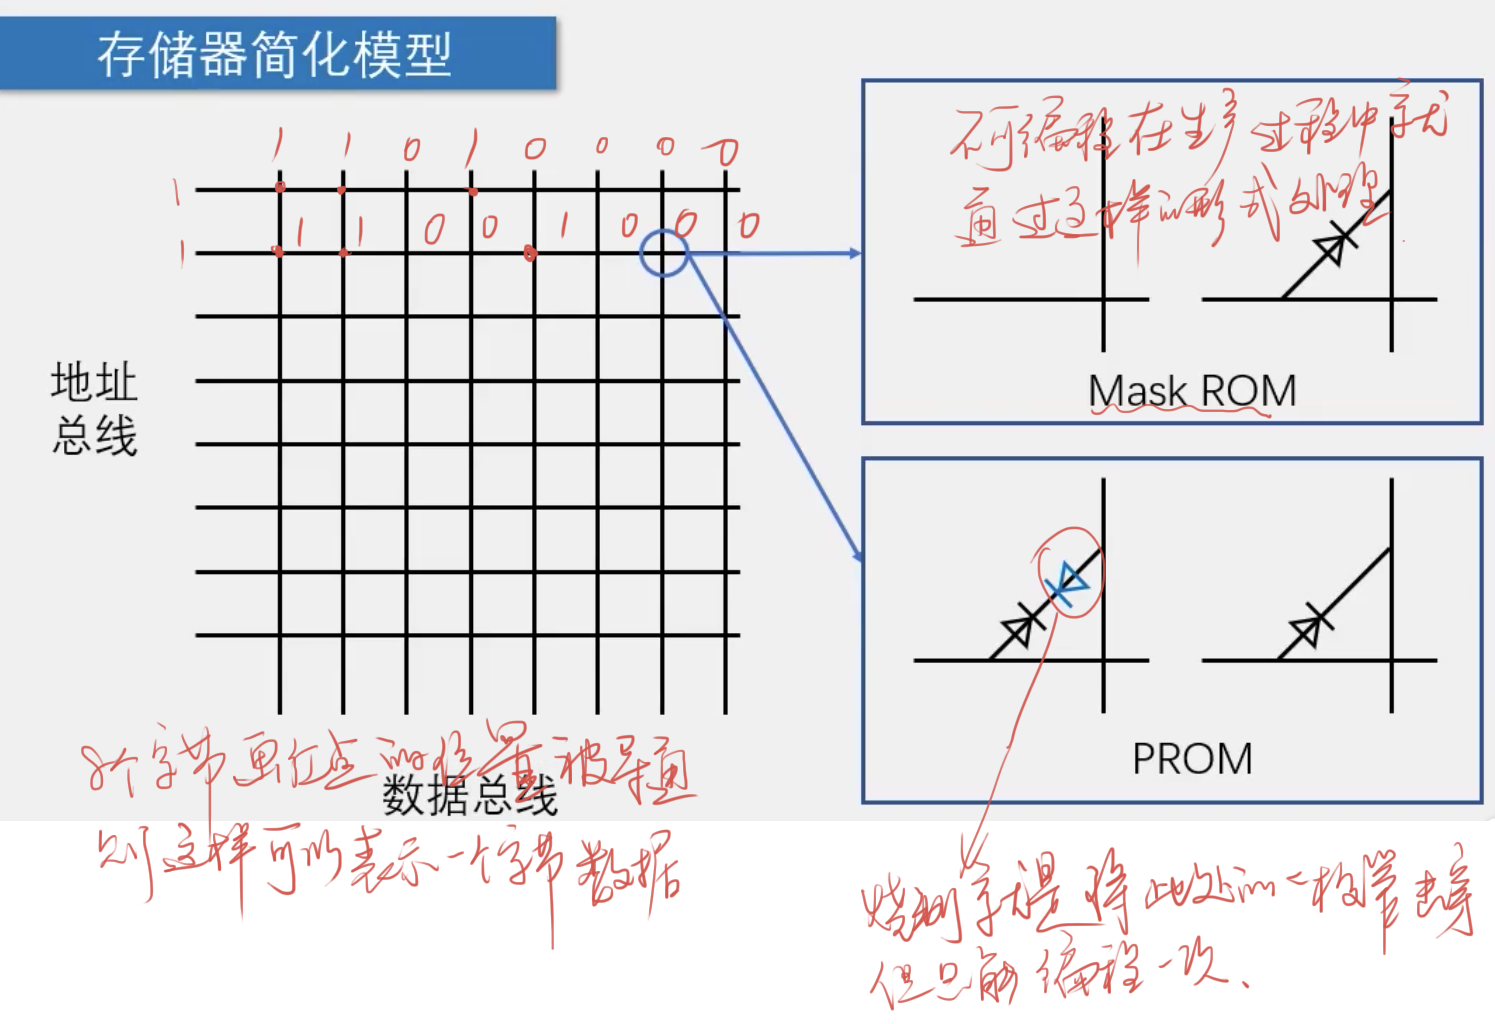 存储器简化模型
1 1 0 1 0 0 0 0
1
1 1 0 0 1 0 0 0
1
地址
总线
数据总线
8个字节画红点的位置被导通
则这样可以表示一个字节数据
不可编程在生产过程中就
通过这样的形式处理
Mask ROM
PROM
烧录就是将此处的二极管击穿
但只能编程一次、